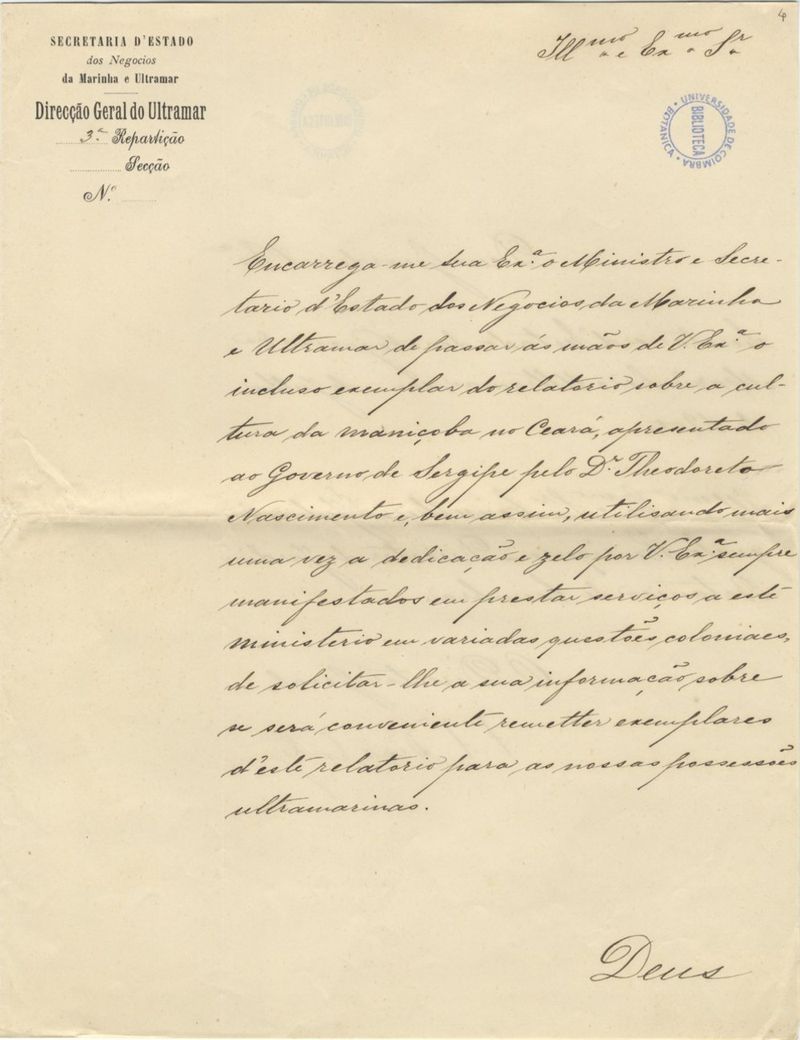 4
SECRETARIA D'ESTADO
dos Negocios
da Marinha e Ultramar
Direcção Geral do Ultramar
3.ª Repartição
Secção
N.º
Ill.mo e Ex.mo Sr.
UNIVERSIDADE DE COIMBRA • BOTANICA •
BIBLIOTECA
Encarrega-me sua Ex.ª o Ministro e Secre-
tario d'Estado dos Negocios da Marinha
e Ultramar de passar ás mãos de V. Ex.ª o
incluso exemplar do relatorio sobre a cul-
tura da maniçoba no Ceará, apresentado
ao Governo de Sergipe pelo Dr. Theodoreto
Nascimento e, bem assim, utilisando mais
uma vez a dedicação e zelo por V. Ex.ª sempre
manifestados em prestar serviços a este
ministerio em variadas questões coloniaes,
de solicitar-lhe a sua informação sobre
se será conveniente remetter exemplares
d'este relatorio para as nossas possessões
ultramarinas.
Deus